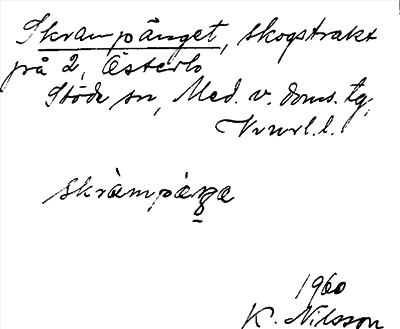 Skrampänget, skogstrakt
på 2, Österlo
Stöde sn, Med. v. doms. tg,
Vnrl.l.
skràmpäŋe
1960
K. Nilsson